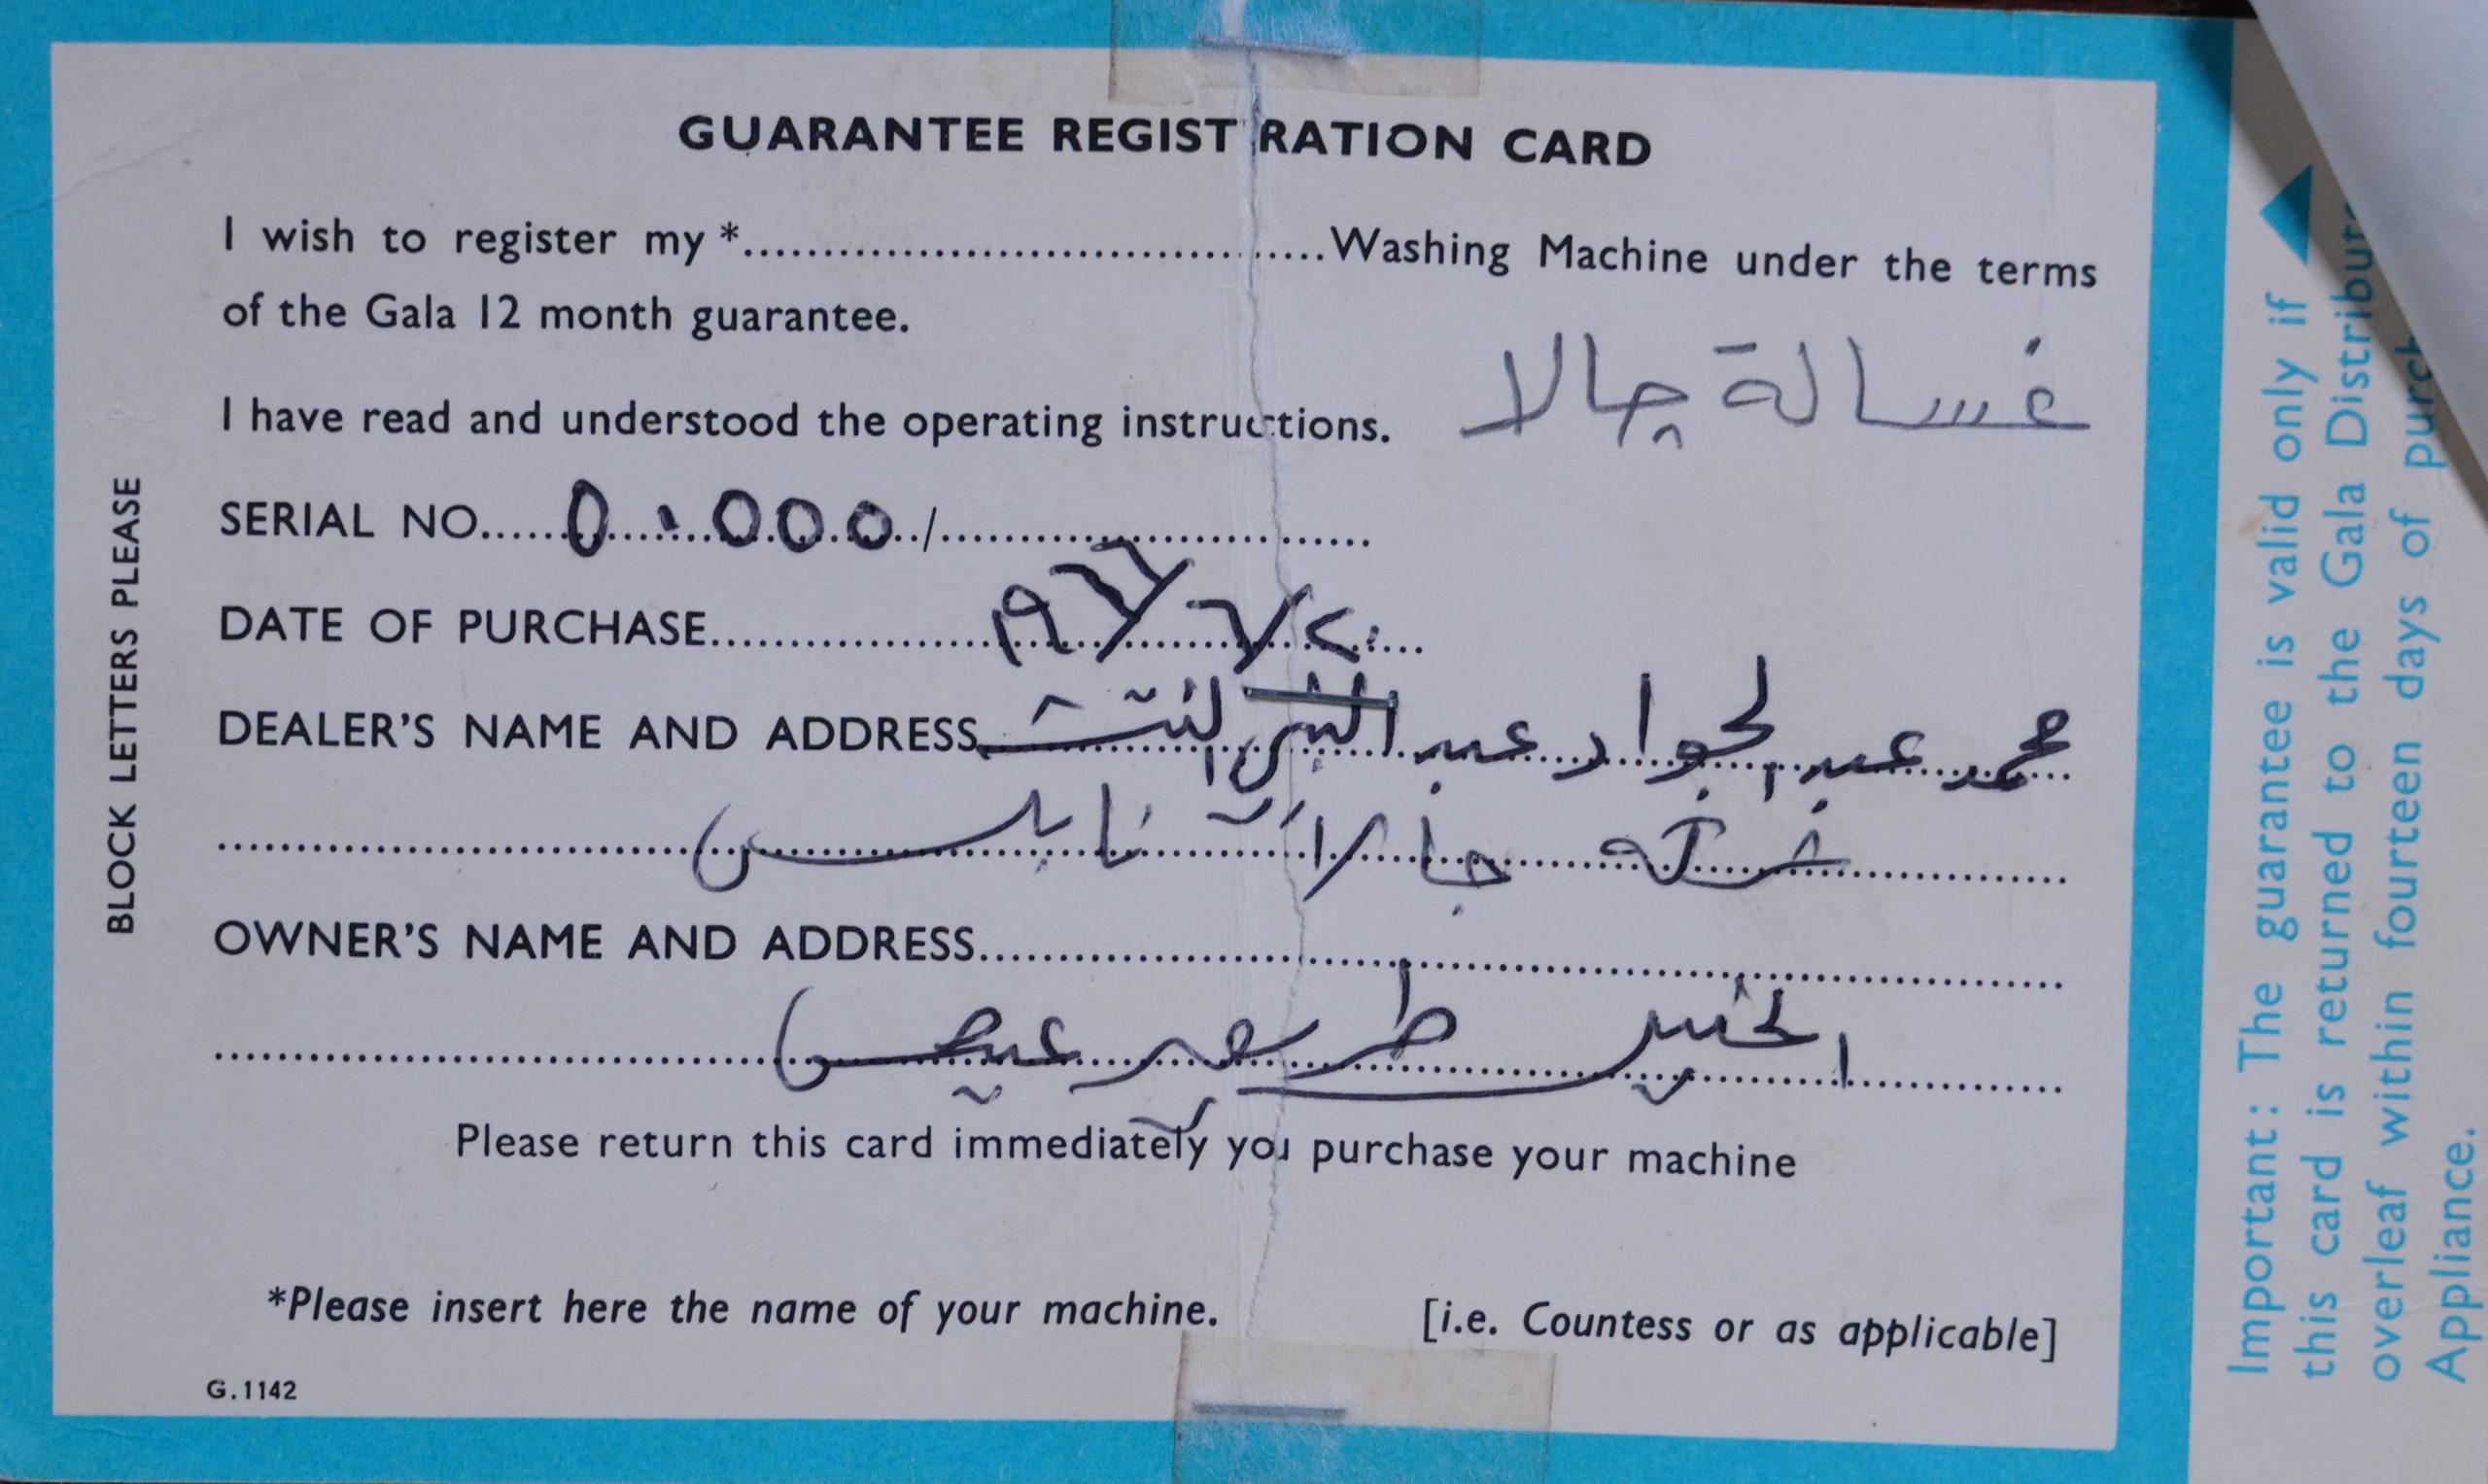 GUARANTEE REGISTRATION CARD
I wish to register my *.......................................Washing Machine under the terms
of the Gala 12 month guarantee.
غسالة جالا
I have read and understood the operating instructions.
SERIAL NO......0.٠.000../..............................
DATE OF PURCHASE
DEALER'S NAME AND ADDRESS محمد عبد الجواد عبد النبي النتشه
شركة جالا نابلس
OWNER'S NAME AND ADDRESS
الخليل طريق عيصى
Please return this card immediately you purchase your machine
*Please insert here the name of your machine. [i.e. Countess or as applicable]
G.1142
BLOCK LETTERS PLEASE
Important: The guarantee is valid only if
this card is returned to the Gala
overleaf within fourteen days of
Appliance.